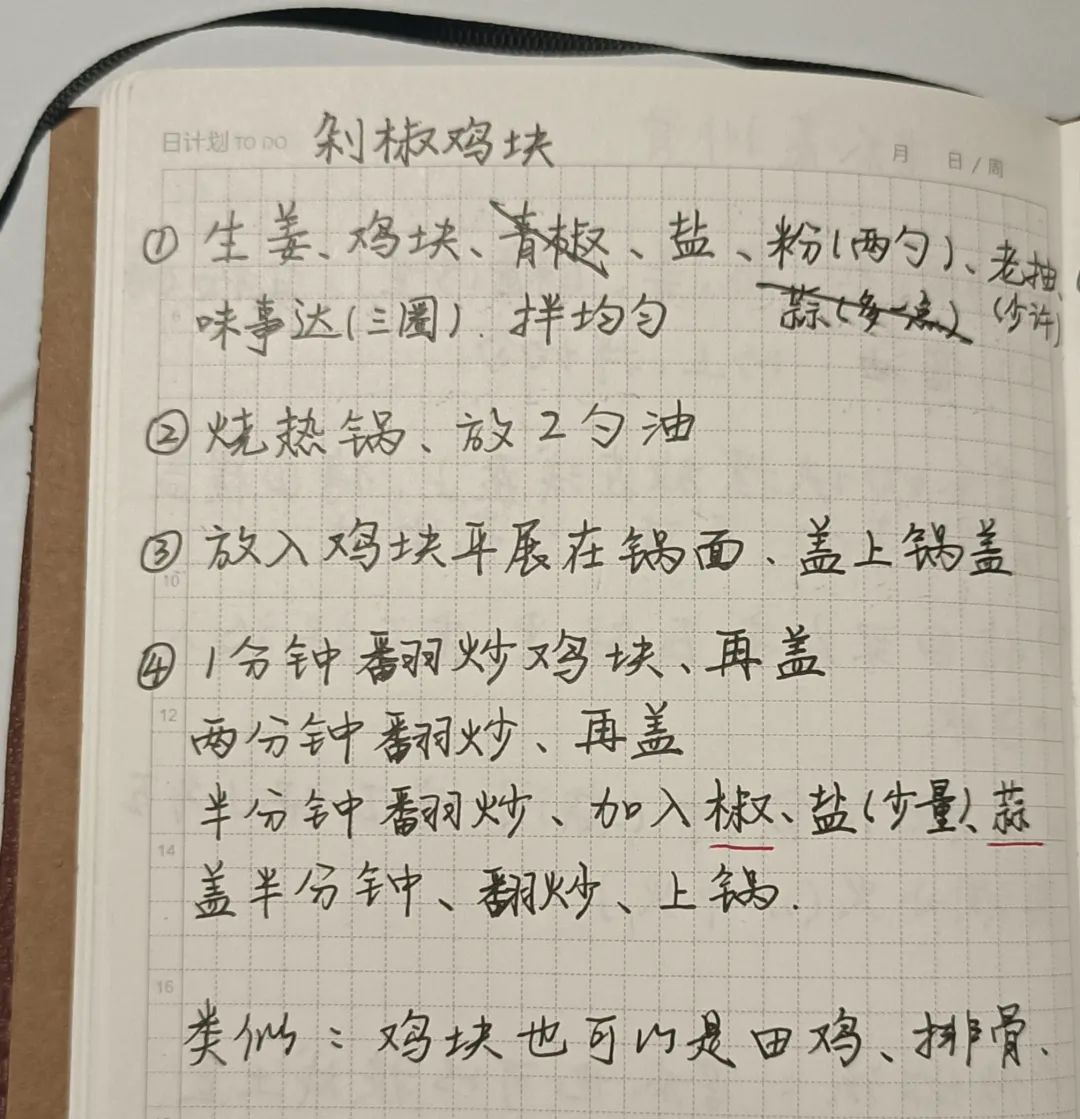 日计划 TO DO 剁椒鸡块 月 日/周
① 生姜、鸡块、青椒、盐、粉(两勺)、老抽、(少许)
味事达(三圈).拌均匀 蒜(多一点)
② 烧热锅、放2勺油
③ 放入鸡块平展在锅面、盖上锅盖
10
④ 1分钟翻炒鸡块、再盖
12
两分钟翻炒、再盖
半分钟翻炒、加入椒、盐(少量)、蒜
14
盖半分钟、翻炒、上锅.
16
类似：鸡块也可以是田鸡、排骨、